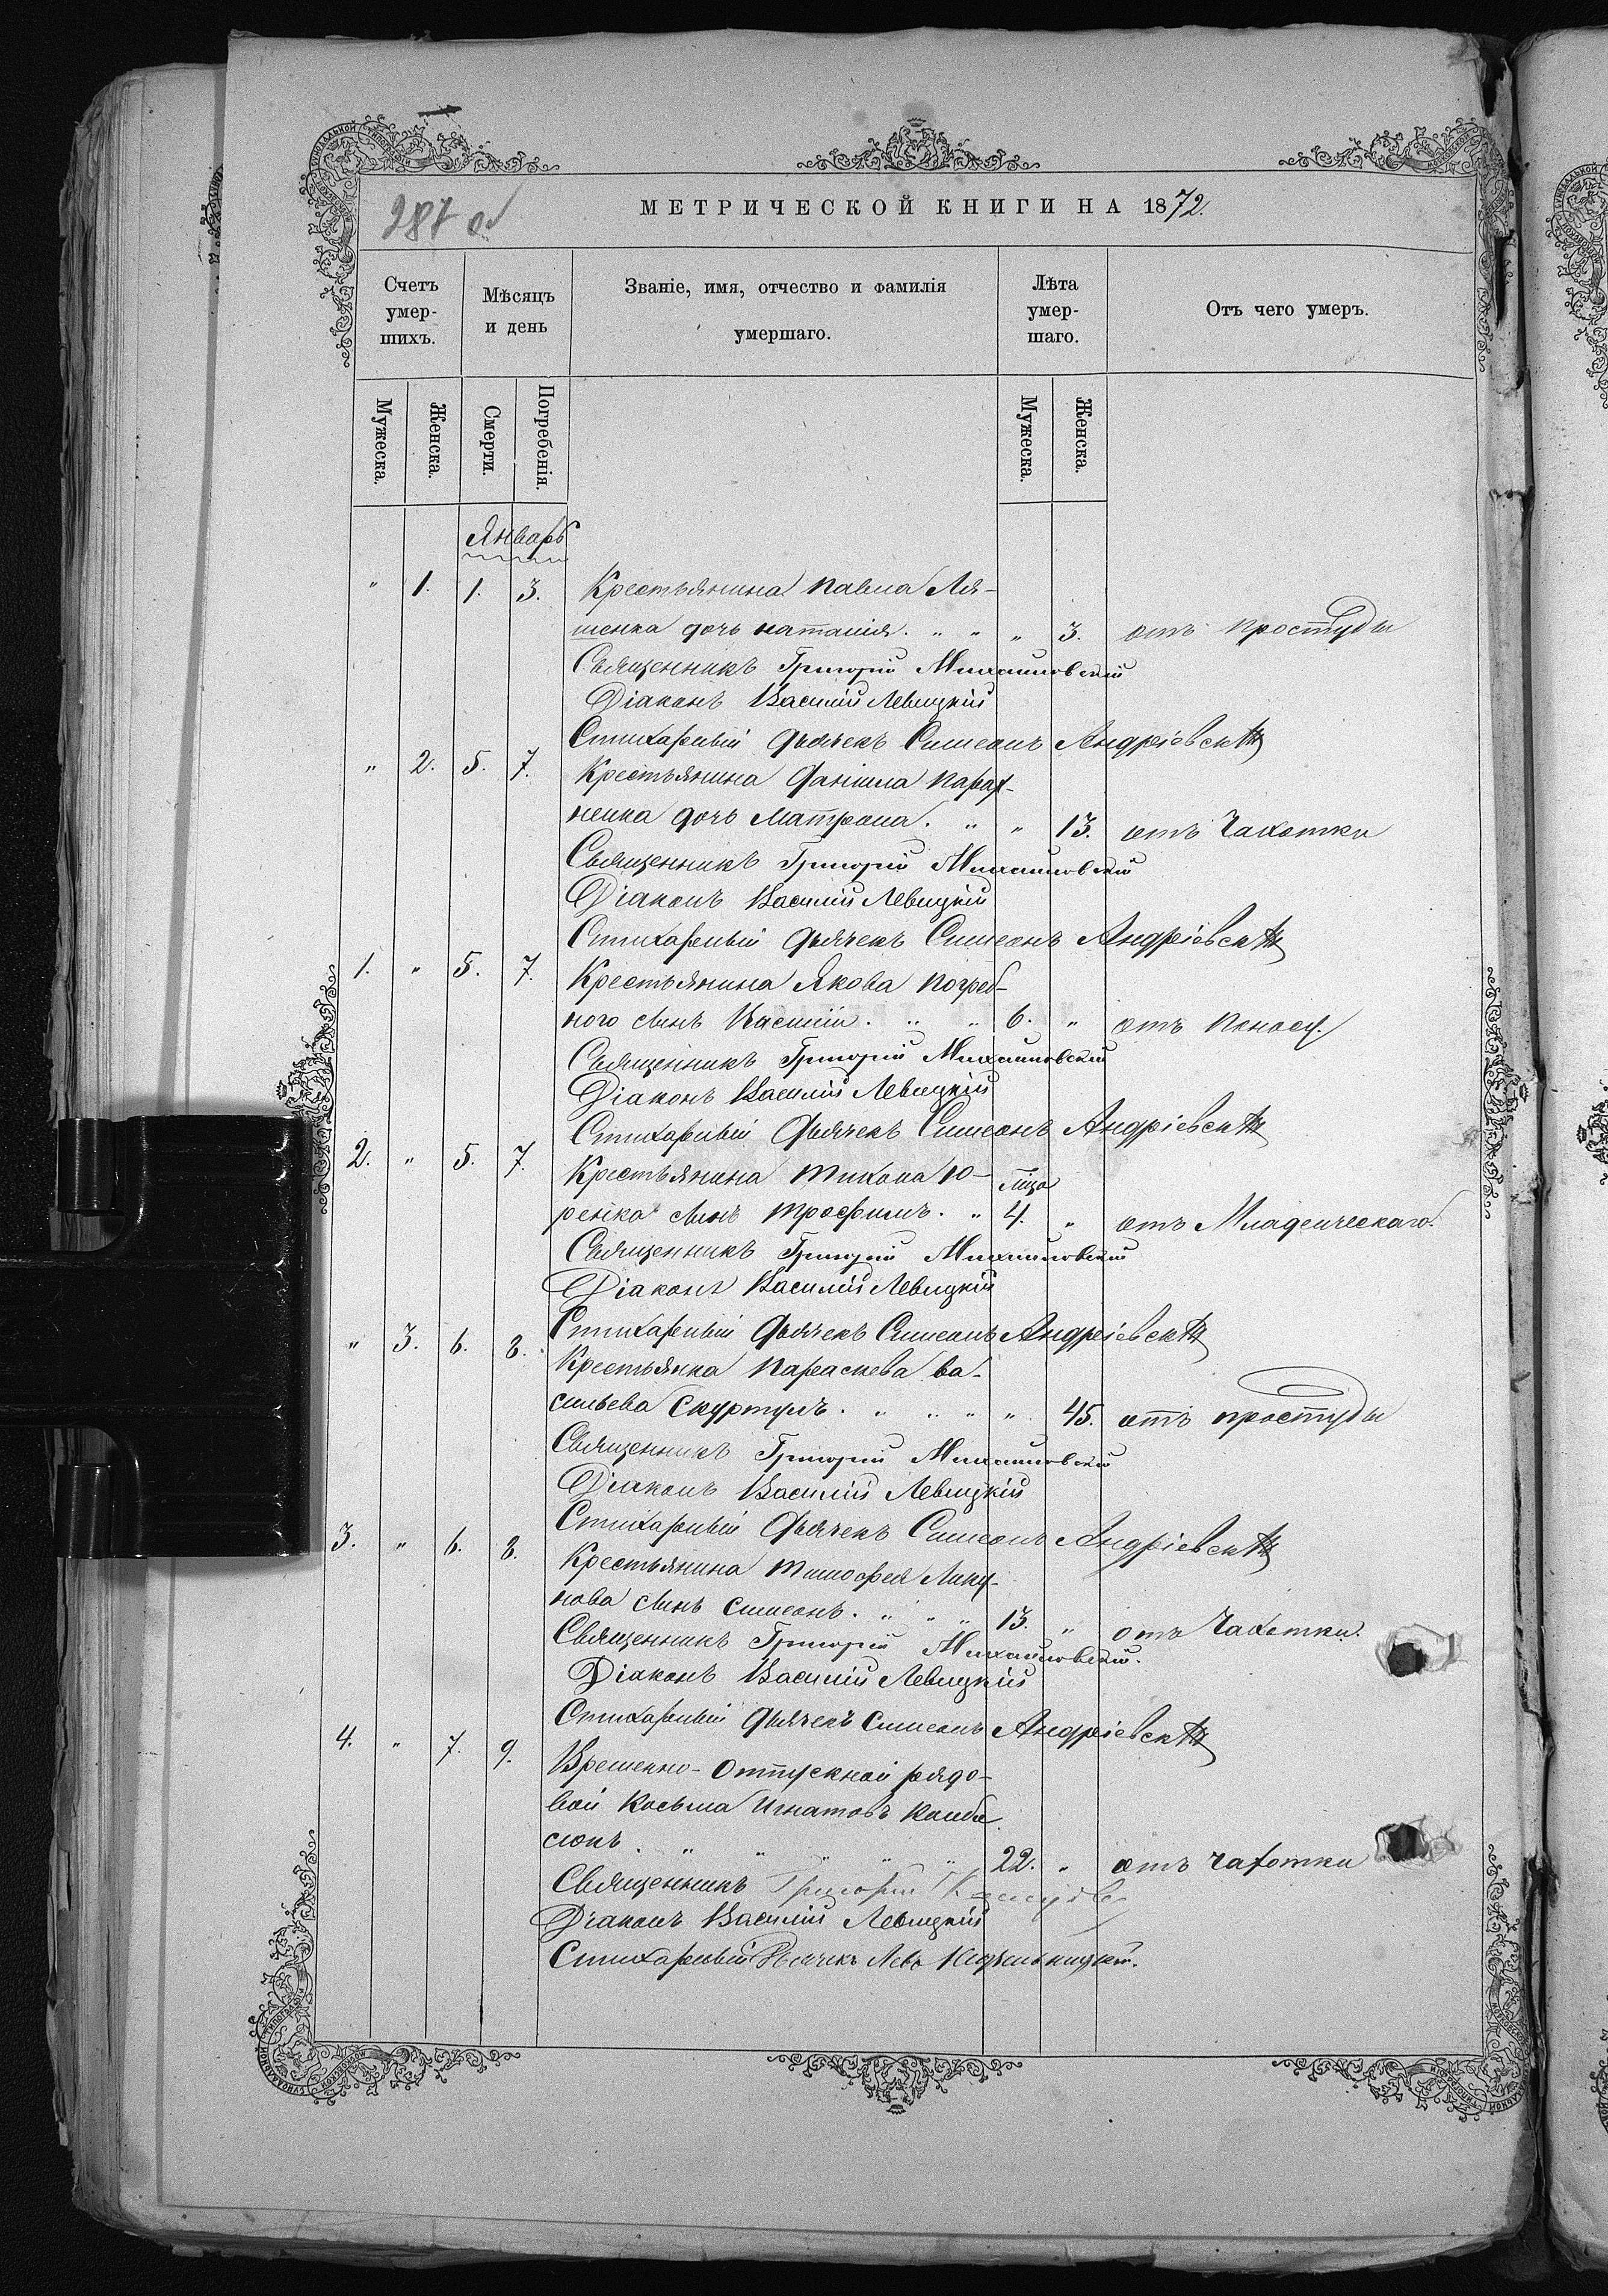 287 об
МЕТРИЧЕСКОЙ КНИГИ НА 1872.
Счетъ умер-шихъ.
Мѣсяцъ и день
Званіе, имя, отчество и фамилія умершаго.
Лѣта умер-шаго.
Отъ чего умеръ.
Мужеска.
Женска.
Смерти.
Погребенія.
Мужеска.
Женска.
Январь
" 1. 1. 3. Крестьянина Павла Ля-
шенка дочь Наталія. " " " 3. отъ простуды
Священникъ Григорій Михайловскій
Діаконъ Василій Левицкій
Стихарный дьячекъ Симеонъ Андріевскій
" 2. 5. 7. Крестьянина Даніила Парах-
ненка дочь Матрона. " " 13. отъ Чахотки
Священникъ Григорій Михайловскій
Діаконъ Василій Левицкій
Стихарный дьячекъ Симеонъ Андріевскій
1. " 5. 7. Крестьянина Якова Погреб-
ного сынъ Василій. " " 6. " отъ Поноса.
Священникъ Григорій Михайловскій
Діаконъ Василій Левицкій
Стихарный дьячекъ Симеонъ Андріевскій
2. " 5. 7. Крестьянина Тихона Ю-
ренка сынъ Трофимъ. " 4. " отъ Младенческаго.
Священникъ Григорій Михайловскій
Діаконъ Василій Левицкій
Стихарный дьячекъ Симеонъ Андріевскій
" 3. 6. 8. Крестьянка Параскева Ва-
сильева Скуртулъ. " " " " 45. отъ простуды
Священникъ Григорій Михайловскій
Діаконъ Василій Левицкій
Стихарный дьячекъ Симеонъ Андріевскій
3. " 6. 8. Крестьянина Тимофея
сынъ Симеонъ. " " " 13. " отъ Чахотки.
Священникъ Григорій Михайловскій.
Діаконъ Василій Левицкій
Стихарный дьячекъ Симеонъ Андріевскій
4. " 7. 9. Временно-Отпускной рядо-
вой Косьма Игнатовъ
" " " " " 22. " отъ Чахотки
Священникъ Григорій
Діаконъ Василій Левицкій
Стихарный Дьячекъ Левъ